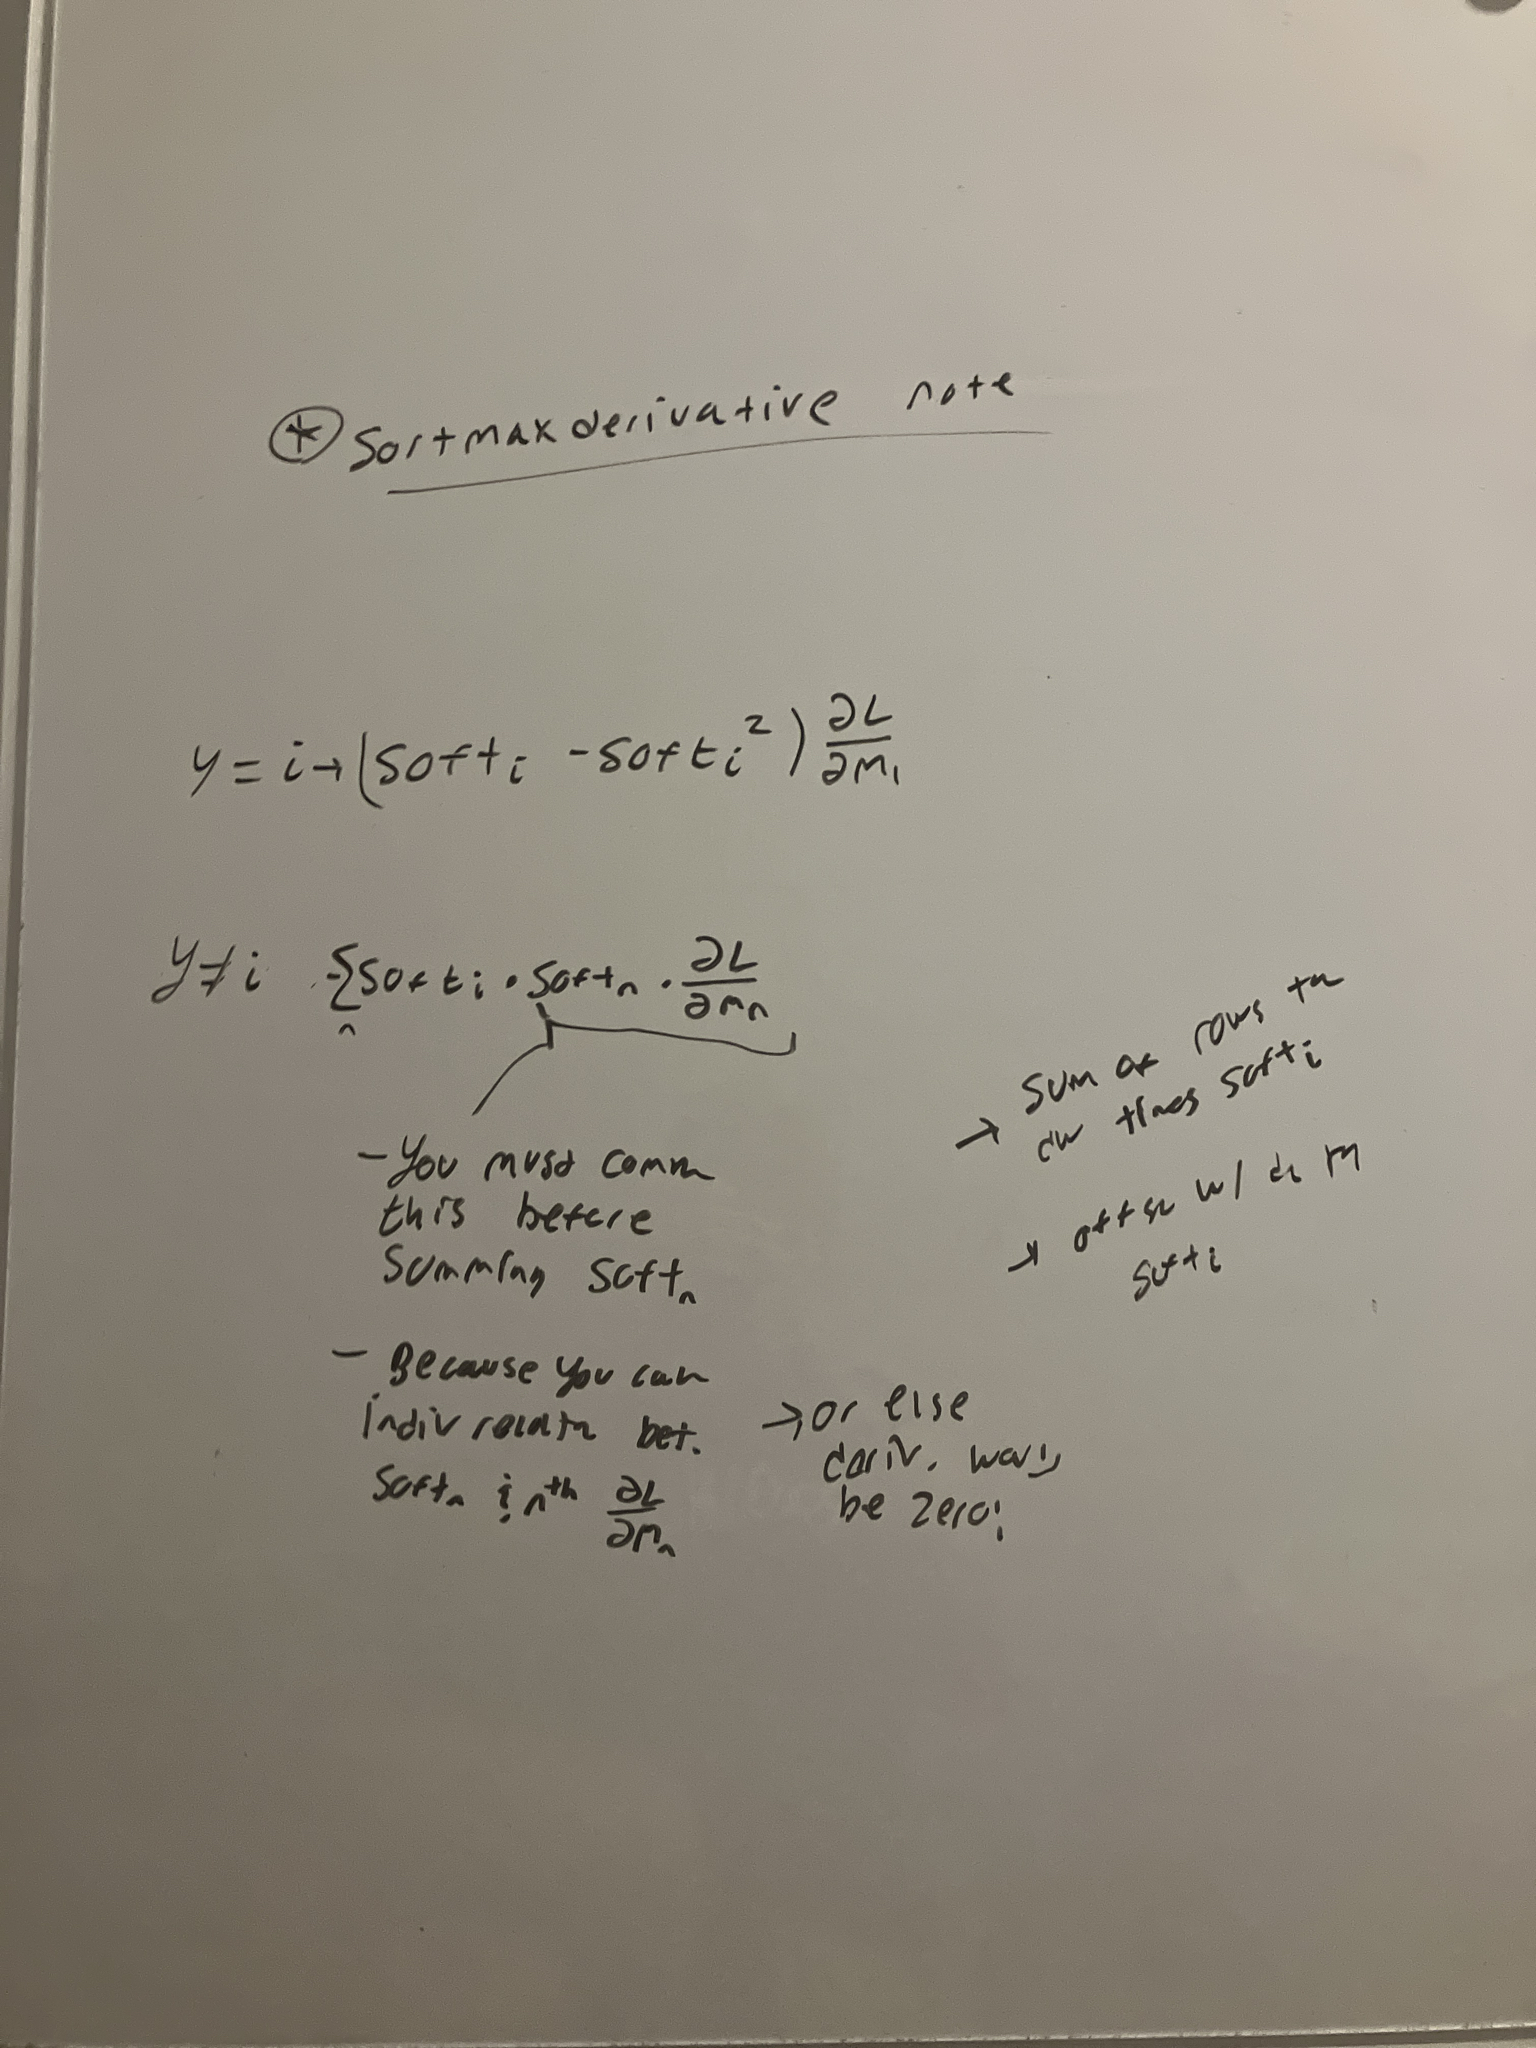 * Softmax derivative note
y = i → (softi - softi²) ∂L/∂mi
y ≠ i -Σn softi · softn · ∂L/∂mn
- You must comm
this before
summing softn
- Because you can
indiv bet.
softn & nth ∂L/∂mn
→ or else
deriv. would
be zero!
→ sum of rows
times softi
→ w/ M
softi